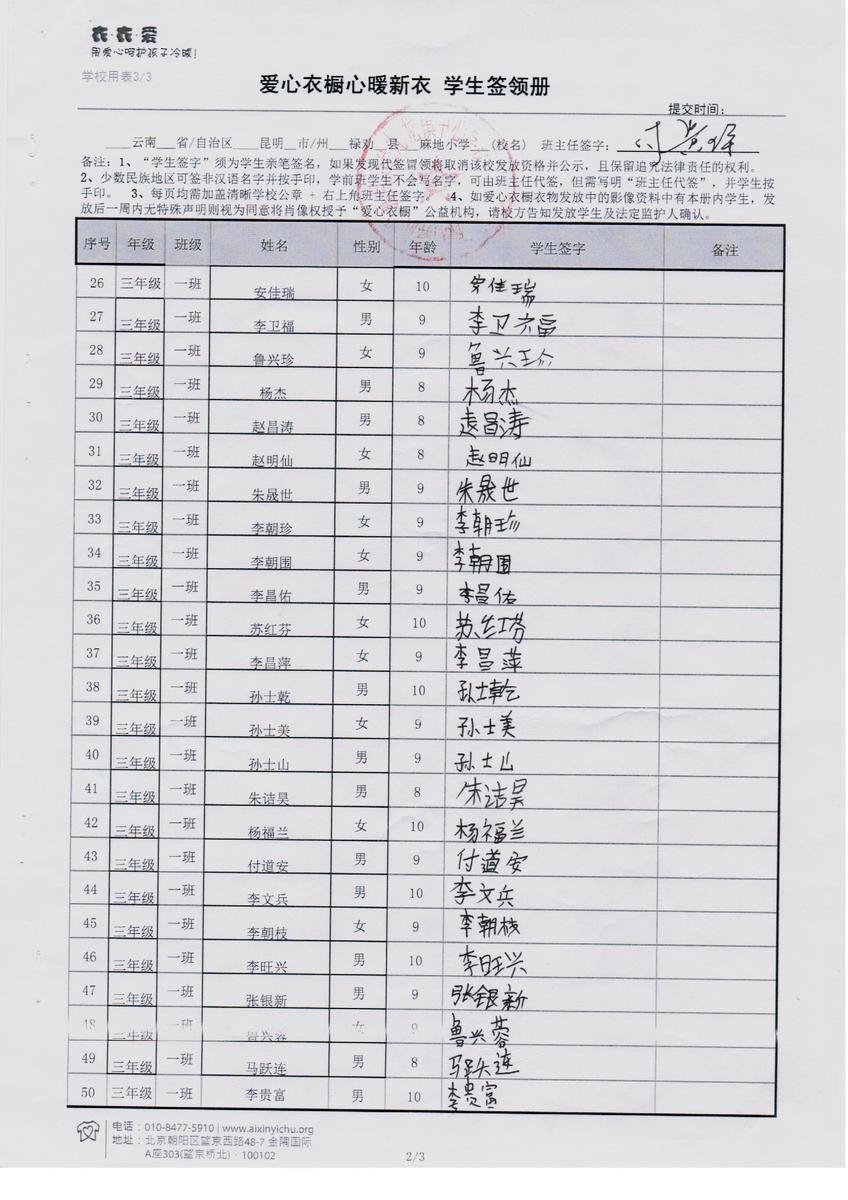 衣·衣·爱
用爱心呵护孩子冷暖!
学校用表3/3
爱心衣橱心暖新衣 学生签领册
提交时间：
云南 省/自治区 昆明 市/州 禄劝 县 麻地小学 (校名) 班主任签字：
备注：1、“学生签字”须为学生亲笔签名，如果发现代签冒领将取消该校发放资格并公示，且保留追究法律责任的权利。
2、少数民族地区可签非汉语名字并按手印，学前班学生不会写名字，可由班主任代签，但需写明“班主任代签”，并学生按
手印。 3、每页均需加盖清晰学校公章 + 右上角班主任签字。 4、如爱心衣橱衣物发放中的影像资料中有本册内学生，发
放后一周内无特殊声明则视为同意将肖像权授予“爱心衣橱”公益机构，请校方告知发放学生及法定监护人确认。
序号 年级 班级 姓名 性别 年龄 学生签字 备注
26 三年级 一班 安佳瑞 女 10 安佳瑞
27 三年级 一班 李卫福 男 9 李卫福
28 三年级 一班 鲁兴珍 女 9 鲁兴珍
29 三年级 一班 杨杰 男 8 杨杰
30 三年级 一班 赵昌涛 男 8 袁昌涛
31 三年级 一班 赵明仙 女 8 赵明仙
32 三年级 一班 朱晟世 男 9 朱晟世
33 三年级 一班 李朝珍 女 9 李朝珍
34 三年级 一班 李朝围 女 9 李朝围
35 三年级 一班 李昌佑 男 9 李昌佑
36 三年级 一班 苏红芬 女 10 苏红芬
37 三年级 一班 李昌萍 女 9 李昌萍
38 三年级 一班 孙士乾 男 10 孙士乾
39 三年级 一班 孙士美 女 9 孙士美
40 三年级 一班 孙士山 男 9 孙士山
41 三年级 一班 朱诘昊 男 8 朱诘昊
42 三年级 一班 杨福兰 女 10 杨福兰
43 三年级 一班 付道安 男 9 付道安
44 三年级 一班 李文兵 男 10 李文兵
45 三年级 一班 李朝枝 女 9 李朝枝
46 三年级 一班 李旺兴 男 10 李旺兴
47 三年级 一班 张银新 男 9 张银新
48 三年级 一班 鲁兴蓉 女 9 鲁兴蓉
49 三年级 一班 马跃连 男 8 马跃连
50 三年级 一班 李贵富 男 10 李贵富
电话：010-8477-5910 | www.aixinyichu.org
地址：北京朝阳区望京西路48-7 金隅国际
A座303(望京桥北)·100102
2/3